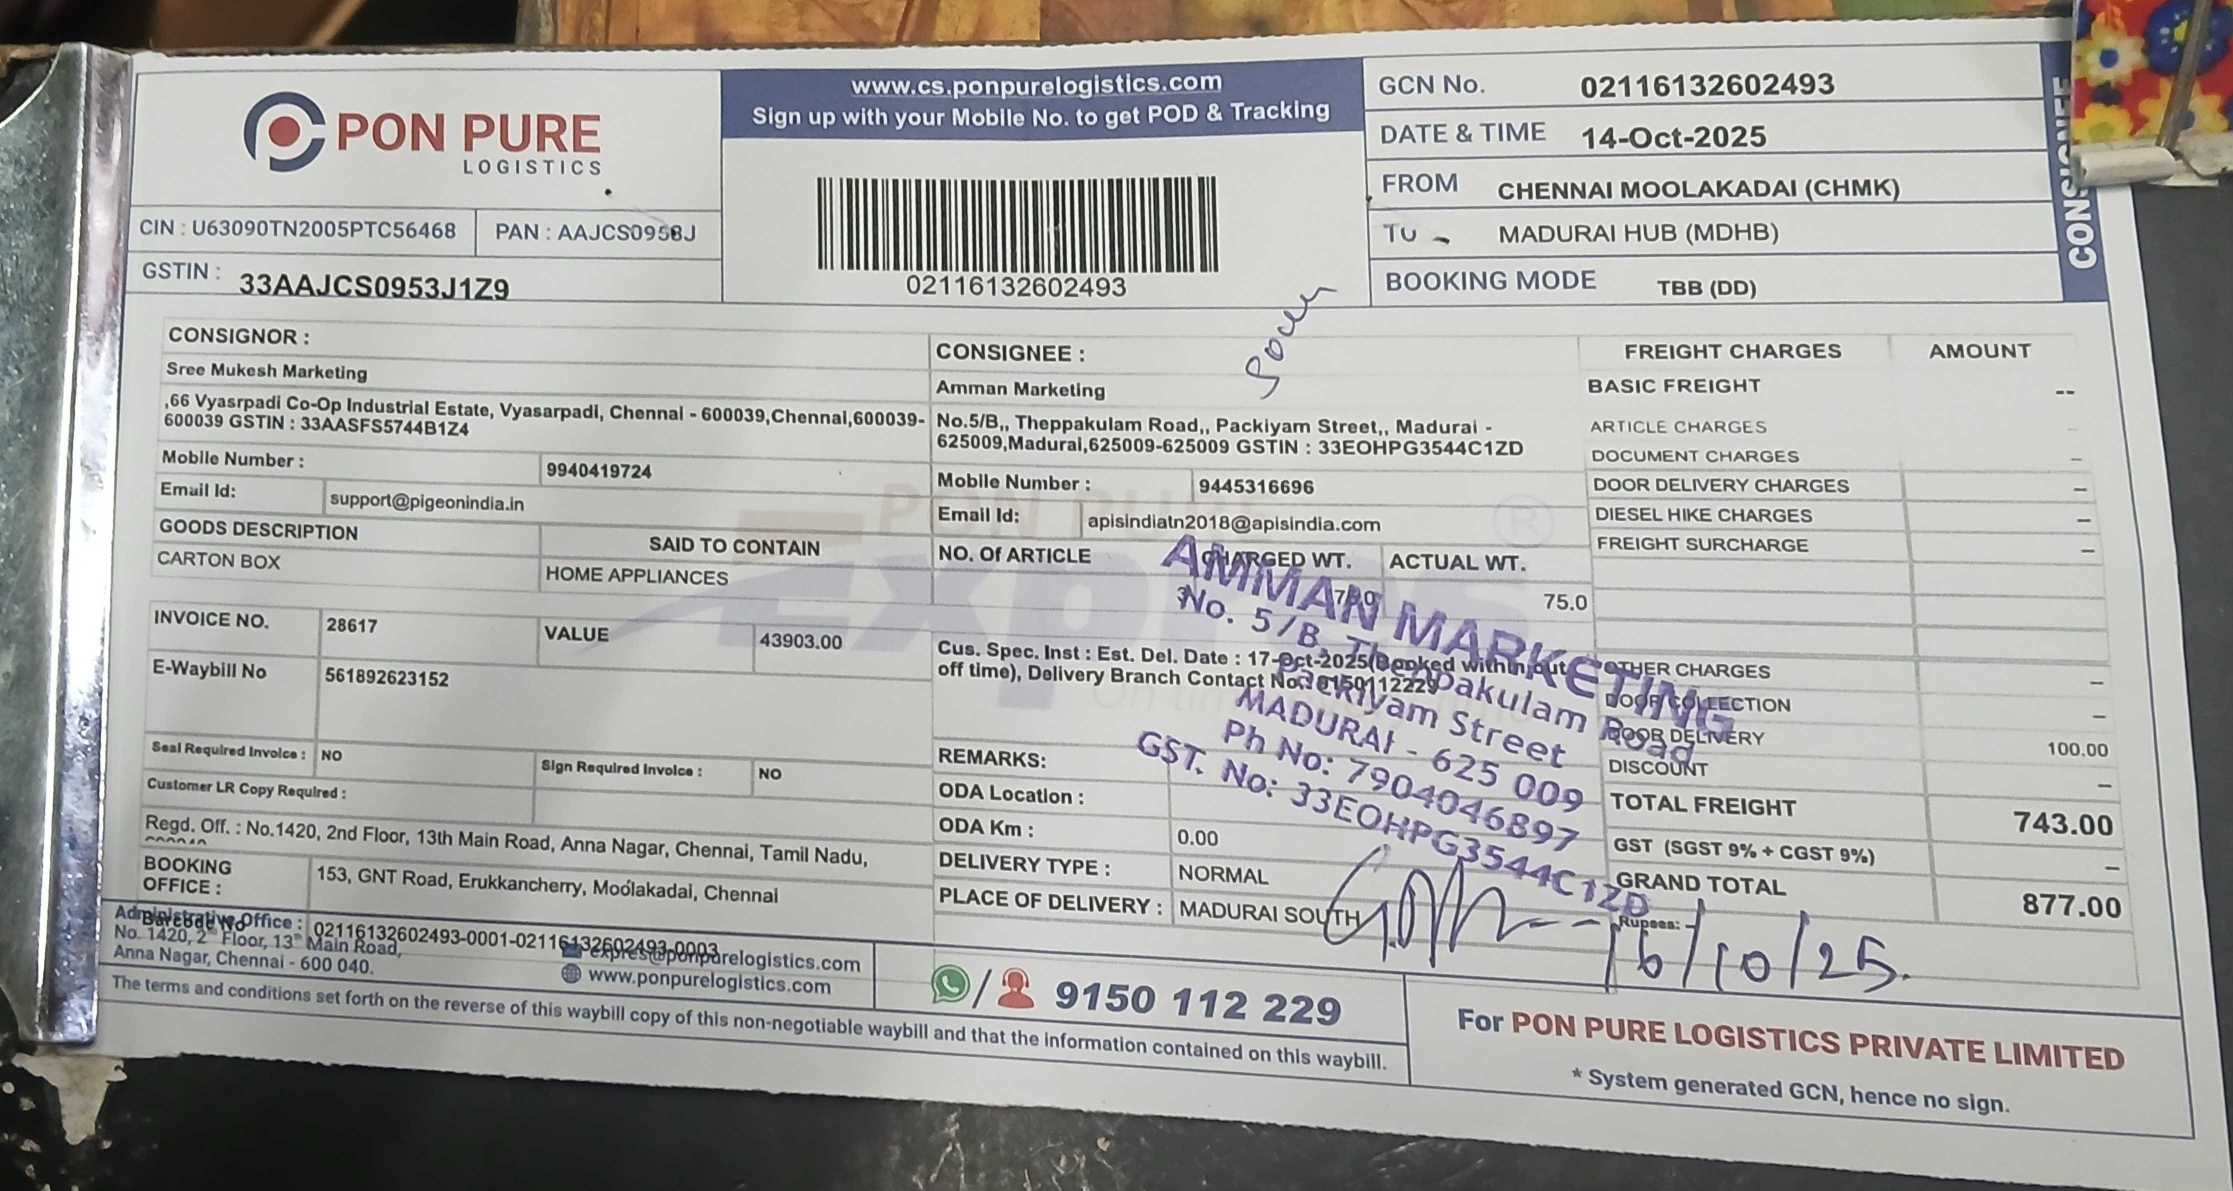 PON PURE
LOGISTICS
CIN : U63090TN2005PTC56468
PAN : AAJCS0953J
GSTIN : 33AAJCS0953J1Z9
www.cs.ponpurelogistics.com
Sign up with your Mobile No. to get POD & Tracking
02116132602493
GCN No. 02116132602493
DATE & TIME 14-Oct-2025
FROM CHENNAI MOOLAKADAI (CHMK)
TO MADURAI HUB (MDHB)
BOOKING MODE TBB (DD)
CONSIGNEE
CONSIGNOR :
Sree Mukesh Marketing
,66 Vyasrpadi Co-Op Industrial Estate, Vyasarpadi, Chennai - 600039,Chennai,600039-
600039 GSTIN : 33AASFS5744B1Z4
Mobile Number : 9940419724
Email Id: support@pigeonindia.in
GOODS DESCRIPTION SAID TO CONTAIN
CARTON BOX HOME APPLIANCES
INVOICE NO. 28617 VALUE 43903.00
E-Waybill No 561892623152
Seal Required Invoice : NO Sign Required Invoice : NO
Customer LR Copy Required :
Regd. Off. : No.1420, 2nd Floor, 13th Main Road, Anna Nagar, Chennai, Tamil Nadu,
BOOKING OFFICE : 153, GNT Road, Erukkancherry, Moolakadai, Chennai
Barcode No 02116132602493-0001-02116132602493-0003
CONSIGNEE :
Amman Marketing
No.5/B,, Theppakulam Road,, Packiyam Street,, Madurai -
625009,Madurai,625009-625009 GSTIN : 33EOHPG3544C1ZD
Mobile Number : 9445316696
Email Id: apisindiatn2018@apisindia.com
NO. Of ARTICLE CHARGED WT. ACTUAL WT.
3 75.0
Cus. Spec. Inst : Est. Del. Date : 17-Oct-2025(Booked within out
off time), Delivery Branch Contact No.: 9150112229
REMARKS:
ODA Location :
ODA Km : 0.00
DELIVERY TYPE : NORMAL
PLACE OF DELIVERY : MADURAI SOUTH
AMMAN MARKETING
No. 5/B, Theppakulam Road
Packiyam Street
MADURAI - 625 009
Ph No: 7904046897
GST. No: 33EOHPG3544C1ZD
16/10/25.
FREIGHT CHARGES AMOUNT
BASIC FREIGHT --
ARTICLE CHARGES –
DOCUMENT CHARGES –
DOOR DELIVERY CHARGES –
DIESEL HIKE CHARGES –
FREIGHT SURCHARGE –
OTHER CHARGES –
DOOR COLLECTION –
DOOR DELIVERY 100.00
DISCOUNT –
TOTAL FREIGHT 743.00
GST (SGST 9% + CGST 9%) –
GRAND TOTAL 877.00
Rupees: -
Administrative Office :
No. 1420, 2nd Floor, 13th Main Road,
Anna Nagar, Chennai - 600 040.
expres@ponpurelogistics.com
www.ponpurelogistics.com
9150 112 229
The terms and conditions set forth on the reverse of this waybill copy of this non-negotiable waybill and that the information contained on this waybill.
For PON PURE LOGISTICS PRIVATE LIMITED
* System generated GCN, hence no sign.